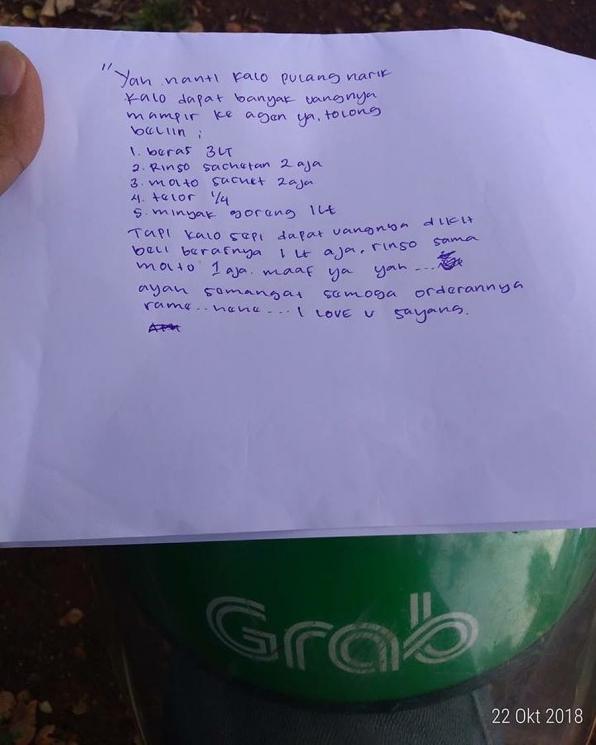 "Yah nanti kalo pulang narik
kalo dapat banyak uangnya
mampir ke agen ya, tolong
beliin ;
1. beras 3LT
2. Rinso sachetan 2 aja
3. molto sachet 2 aja
4. telor 1/4
5. minyak goreng 1 Lt
Tapi kalo sepi dapat uangnya dikit
beli berasnya 1 Lt aja, rinso sama
molto 1 aja. maaf ya yah ...
ayah semangat semoga orderannya
rame.. hehe... I LOVE U sayang.
Grab
22 Okt 2018